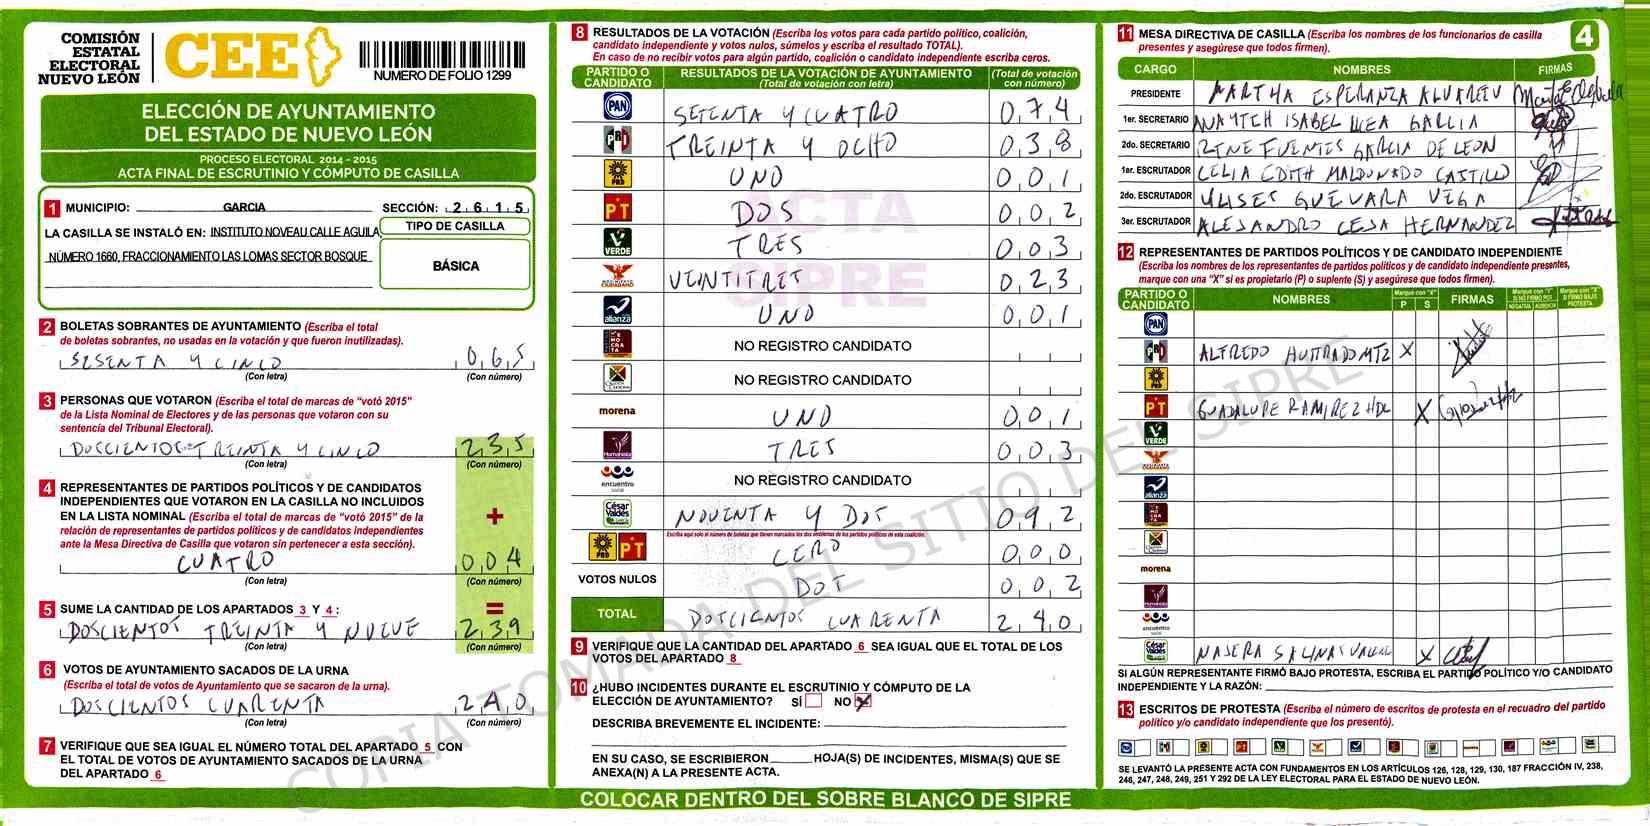 COMISIÓN
ESTATAL
ELECTORAL
NUEVO LEÓN
CEE
NUMERO DE FOLIO 1299
ELECCIÓN DE AYUNTAMIENTO
DEL ESTADO DE NUEVO LEÓN
PROCESO ELECTORAL 2014 - 2015
ACTA FINAL DE ESCRUTINIO Y CÓMPUTO DE CASILLA
1 MUNICIPIO: GARCIA SECCIÓN: 2 6 1 5
LA CASILLA SE INSTALÓ EN: INSTITUTO NOVEAU CALLE AGUILA,
NÚMERO 1660, FRACCIONAMIENTO LAS LOMAS SECTOR BOSQUE
TIPO DE CASILLA
BÁSICA
2 BOLETAS SOBRANTES DE AYUNTAMIENTO (Escriba el total
de boletas sobrantes, no usadas en la votación y que fueron inutilizadas).
SESENTA Y CINCO 0 6 5
(Con letra) (Con número)
3 PERSONAS QUE VOTARON (Escriba el total de marcas de “votó 2015”
de la Lista Nominal de Electores y de las personas que votaron con su
sentencia del Tribunal Electoral).
DOSCIENTOS TREINTA Y CINCO 2 3 5
(Con letra) (Con número)
4 REPRESENTANTES DE PARTIDOS POLÍTICOS Y DE CANDIDATOS
INDEPENDIENTES QUE VOTARON EN LA CASILLA NO INCLUIDOS
EN LA LISTA NOMINAL (Escriba el total de marcas de “votó 2015” de la
relación de representantes de partidos políticos y de candidatos independientes
ante la Mesa Directiva de Casilla que votaron sin pertenecer a esta sección).
+
CUATRO 0 0 4
(Con letra) (Con número)
=
5 SUME LA CANTIDAD DE LOS APARTADOS 3 Y 4 :
DOSCIENTOS TREINTA Y NUEVE 2 3 9
(Con letra) (Con número)
6 VOTOS DE AYUNTAMIENTO SACADOS DE LA URNA
(Escriba el total de votos de Ayuntamiento que se sacaron de la urna).
DOSCIENTOS CUARENTA 2 4 0
(Con letra) (Con número)
7 VERIFIQUE QUE SEA IGUAL EL NÚMERO TOTAL DEL APARTADO 5 CON
EL TOTAL DE VOTOS DE AYUNTAMIENTO SACADOS DE LA URNA
DEL APARTADO 6
8 RESULTADOS DE LA VOTACIÓN (Escriba los votos para cada partido político, coalición,
candidato independiente y votos nulos, súmelos y escriba el resultado TOTAL).
En caso de no recibir votos para algún partido, coalición o candidato independiente escriba ceros.
PARTIDO O CANDIDATO
RESULTADOS DE LA VOTACIÓN DE AYUNTAMIENTO
(Total de votación con letra)
(Total de votación con número)
PAN SETENTA Y CUATRO 0 7 4
PRI TREINTA Y OCHO 0 3 8
PRD UNO 0 0 1
PT DOS 0 0 2
VERDE TRES 0 0 3
MOVIMIENTO CIUDADANO VEINTITRES 0 2 3
alianza UNO 0 0 1
NO REGISTRO CANDIDATO
NO REGISTRO CANDIDATO
morena UNO 0 0 1
Humanista TRES 0 0 3
encuentro social NO REGISTRO CANDIDATO
César Valdés NOVENTA Y DOS 0 9 2
Escriba aquí solo el número de boletas que tienen marcados los dos emblemas de los partidos políticos de esta coalición.
PRD PT CERO 0 0 0
VOTOS NULOS DOS 0 0 2
TOTAL DOSCIENTOS CUARENTA 2 4 0
ACTA
SIPRE
9 VERIFIQUE QUE LA CANTIDAD DEL APARTADO 6 SEA IGUAL QUE EL TOTAL DE LOS
VOTOS DEL APARTADO 8
10 ¿HUBO INCIDENTES DURANTE EL ESCRUTINIO Y CÓMPUTO DE LA
ELECCIÓN DE AYUNTAMIENTO? SÍ NO X
DESCRIBA BREVEMENTE EL INCIDENTE:
EN SU CASO, SE ESCRIBIERON HOJA(S) DE INCIDENTES, MISMA(S) QUE SE
ANEXA(N) A LA PRESENTE ACTA.
COLOCAR DENTRO DEL SOBRE BLANCO DE SIPRE
11 MESA DIRECTIVA DE CASILLA (Escriba los nombres de los funcionarios de casilla
presentes y asegúrese que todos firmen).
4
CARGO NOMBRES FIRMAS
PRESIDENTE MARTHA ESPERANZA
1er. SECRETARIO ISABEL GARCIA
2do. SECRETARIO RENE FUENTES GARCIA DE LEON
1er. ESCRUTADOR CELIA EDITH MALDONADO CASTILLO
2do. ESCRUTADOR ULISES GUEVARA VEGA
3er. ESCRUTADOR ALEJANDRO CEJA HERNANDEZ
12 REPRESENTANTES DE PARTIDOS POLÍTICOS Y DE CANDIDATO INDEPENDIENTE
(Escriba los nombres de los representantes de partidos políticos y de candidato independiente presentes,
marque con una “X” si es propietario (P) o suplente (S) y asegúrese que todos firmen).
PARTIDO O CANDIDATO NOMBRES Marque con “X” P S FIRMAS
PAN
PRI ALFREDO HURTADO MTZ X
PRD
PT GUADALUPE RAMIREZ HDZ X
VERDE
alianza
morena
Humanista
encuentro social
César Valdés NAJERA SALINAS X
SI ALGÚN REPRESENTANTE FIRMÓ BAJO PROTESTA, ESCRIBA EL PARTIDO POLÍTICO Y/O CANDIDATO
INDEPENDIENTE Y LA RAZÓN:
13 ESCRITOS DE PROTESTA (Escriba el número de escritos de protesta en el recuadro del partido
político y/o candidato independiente que los presentó).
SE LEVANTÓ LA PRESENTE ACTA CON FUNDAMENTOS EN LOS ARTÍCULOS 126, 128, 129, 130, 187 FRACCIÓN IV, 238,
246, 247, 248, 249, 251 Y 292 DE LA LEY ELECTORAL PARA EL ESTADO DE NUEVO LEÓN.
COPIA TOMADA DEL SITIO DEL SIPRE